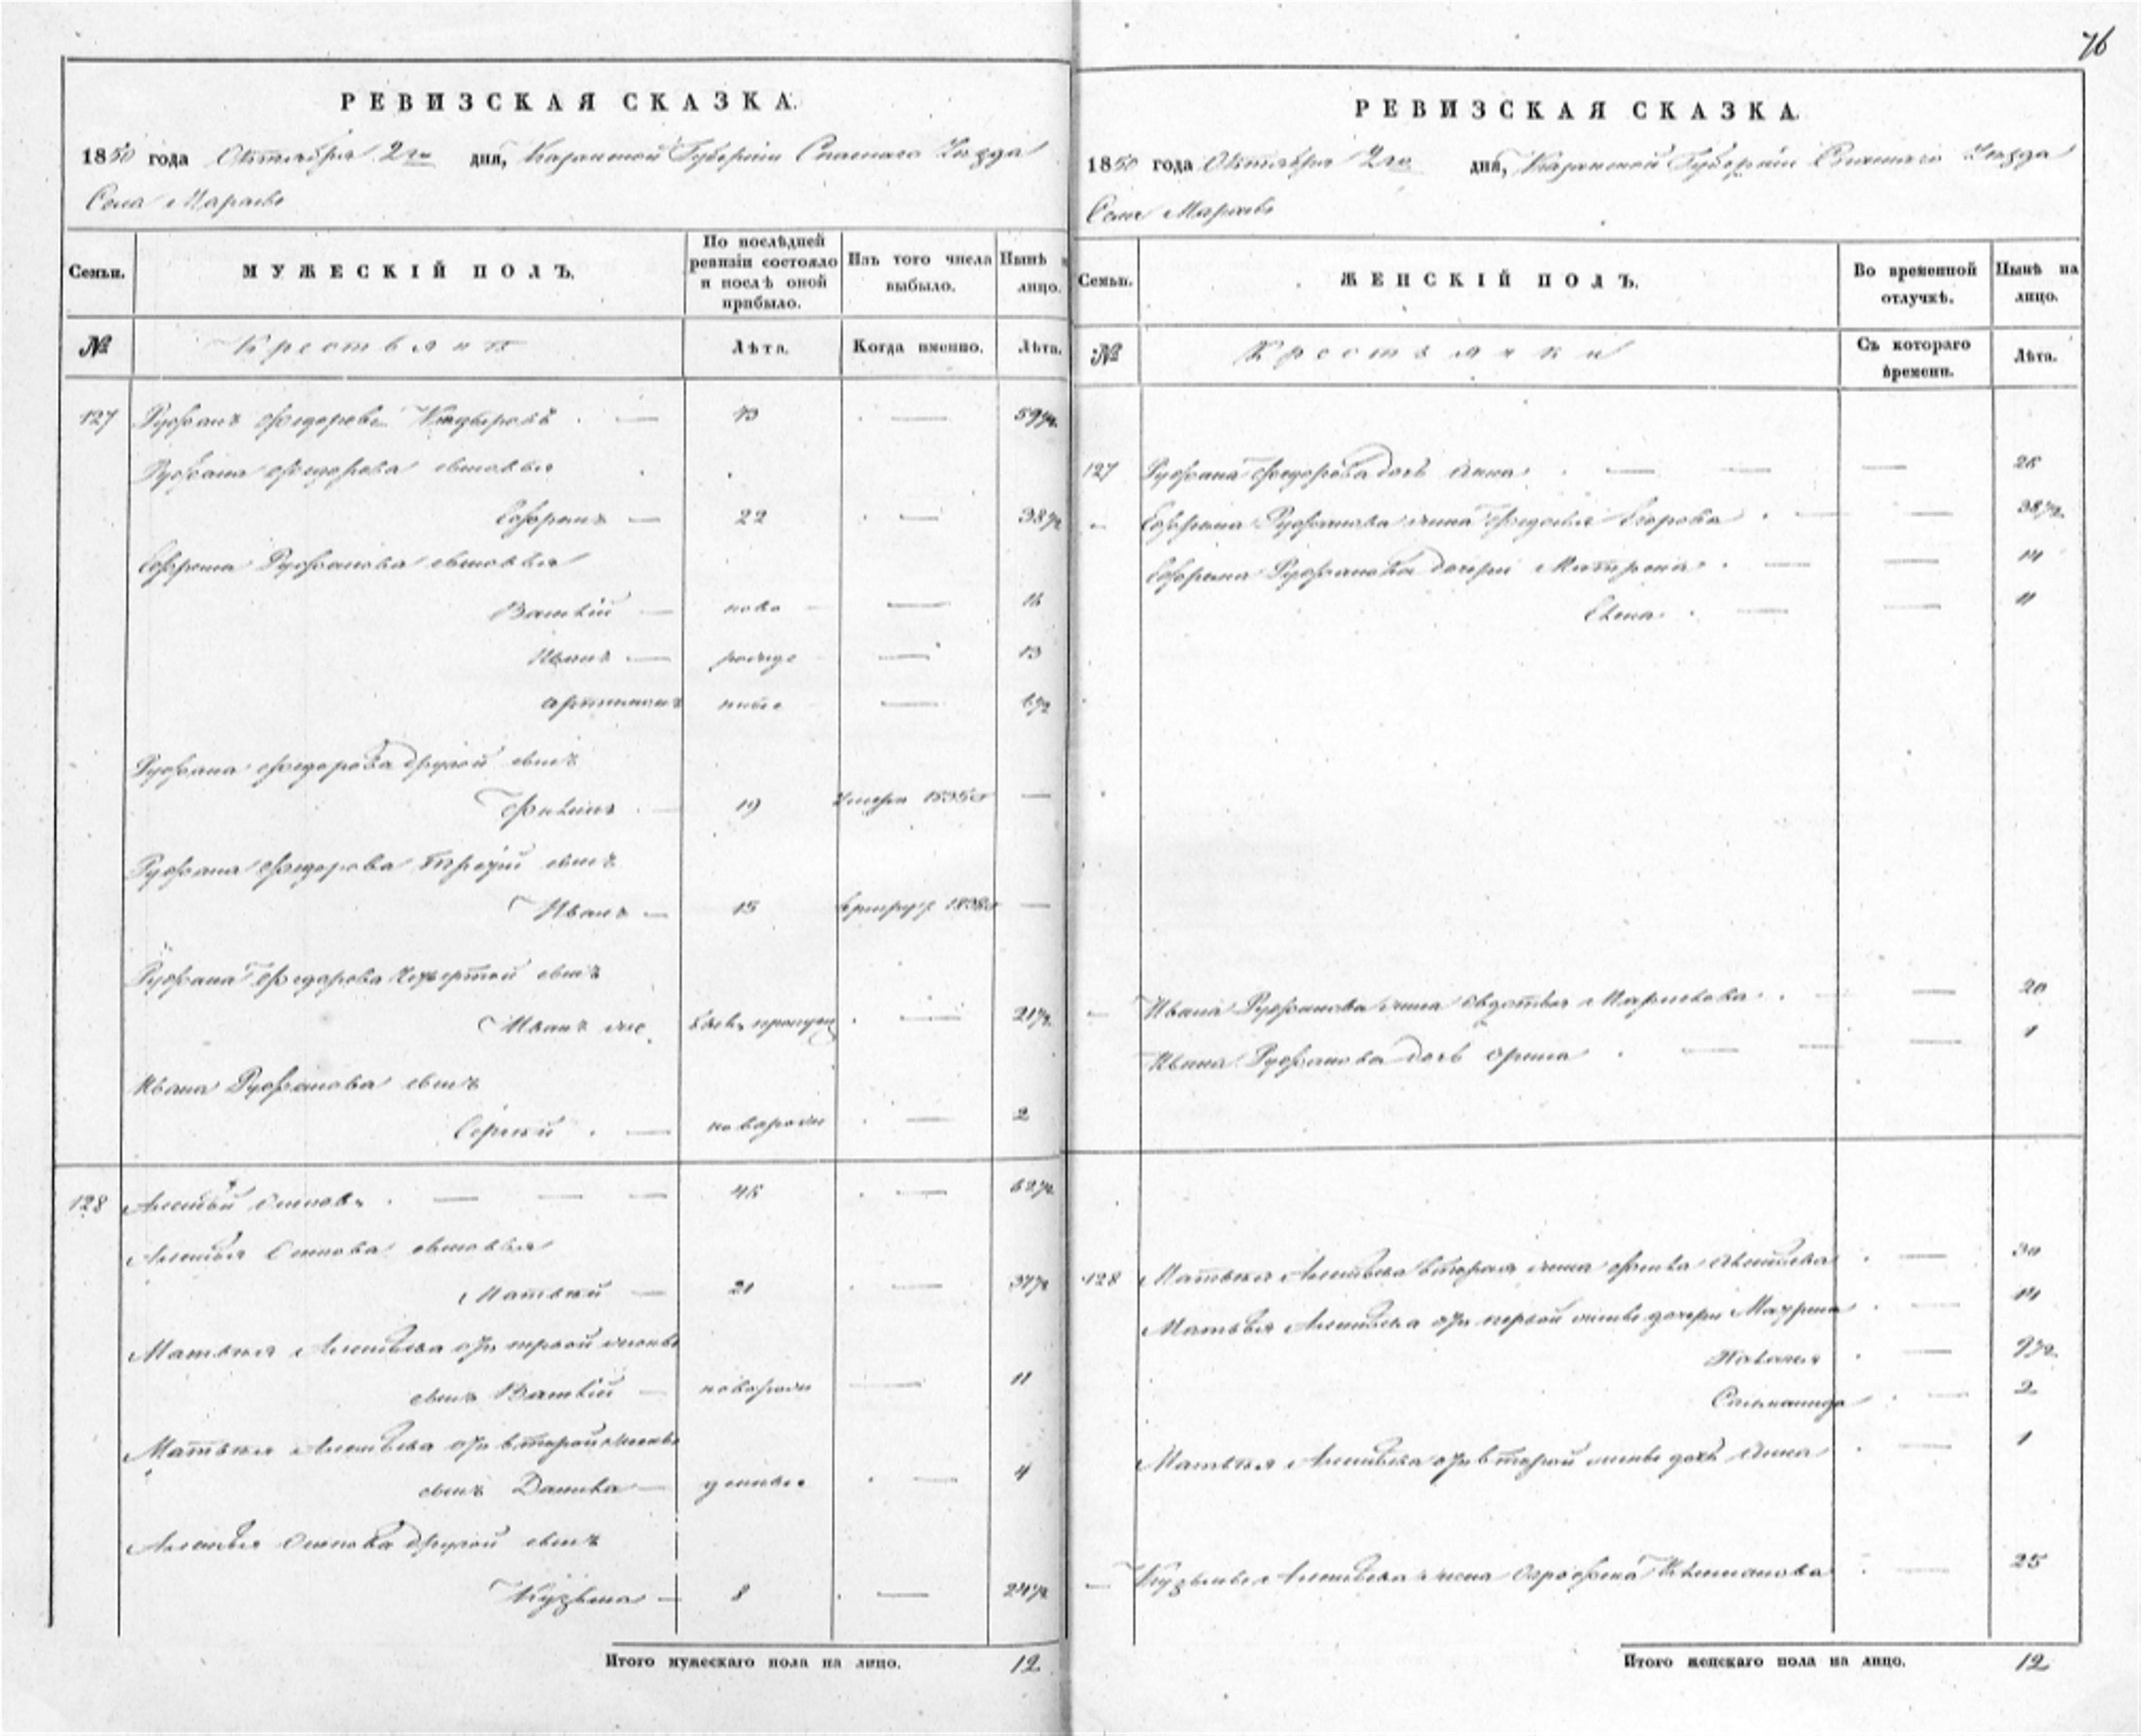 76
РЕВИЗСКАЯ СКАЗКА.
1850 года Октября 2го дня, Казанской Губернии Спаского Уезда
Села Марасы
Семьи.
МУЖЕСКІЙ ПОЛЪ.
По послѣдней ревизіи состояло и послѣ оной прибыло.
Изъ того числа выбыло.
Нынѣ на лицо.
№
Крестьянъ
Лѣта.
Когда именно.
Лѣта.
127 Руфанъ Федоровъ — —
Руфана Федорова сыновья
Ефремъ — 22 — 38½
Ефрема Руфанова сыновья
Василій — ново — 16
Иванъ — рожде — 13
ные — 6½
Руфана Федорова другой сынъ
19 умеръ 1835 —
Руфана Федорова третій сынъ
Иванъ — 15 1838 —
Руфана Федорова четвертой сынъ
Иванъ же пропущ — 21½
Ивана Руфанова сынъ
Сергей — новорож — 2
128 Алексѣй Осиповъ — — — 46 — 62½
Алексѣя Осипова сыновья
Матвей — 21 — 37½
Матвея Алексѣева отъ первой жены
сынъ Василій — новорож — 11
Матвея Алексѣева отъ второй жены
сынъ Данила — денные — 4
Алексѣя Осипова другой сынъ
Кузьма — 8 — 24½
Итого мужескаго пола на лицо. 12
РЕВИЗСКАЯ СКАЗКА.
1850 года Октября 2го дня, Казанской Губернии Спаского Уезда
Села Марасы
Семьи.
ЖЕНСКІЙ ПОЛЪ.
Во временной отлучкѣ.
Нынѣ на лицо.
№
Крестьянки
Съ котораго времени.
Лѣта.
127 Руфана Федорова дочь Анна — — — 26
Ефрема Руфанова жина Федосья Егорова — — 38½
Ефрема Руфанова дочери Матрена — — 14
Елена — — 11
— Ивана Руфанова жина Авдотья — 20
Ивана Руфанова дочь Орина — — — 1
128 Матвея Алексѣева вторая жина — 30
Матвея Алексѣева отъ первой жены дочери Маурина — 14
Наталья — 9½
2
Матвея Алексѣева отъ второй жены дочь Анна — 1
— Кузьмы Алексѣева жена — 25
Итого женскаго пола на лицо. 12